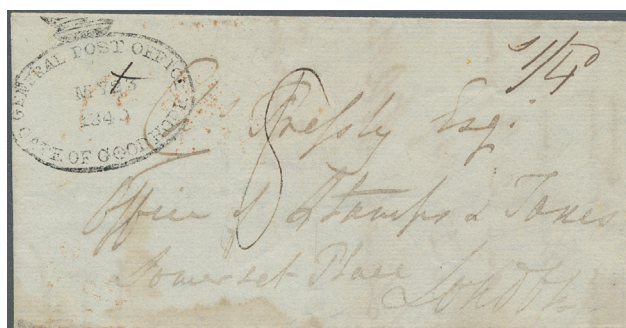 GENERAL POST OFFICE
184
CAPE OF GOOD HOPE
1/4
8
Pressly Esqr
Office of Stamps & Taxes
Somerset Place
London